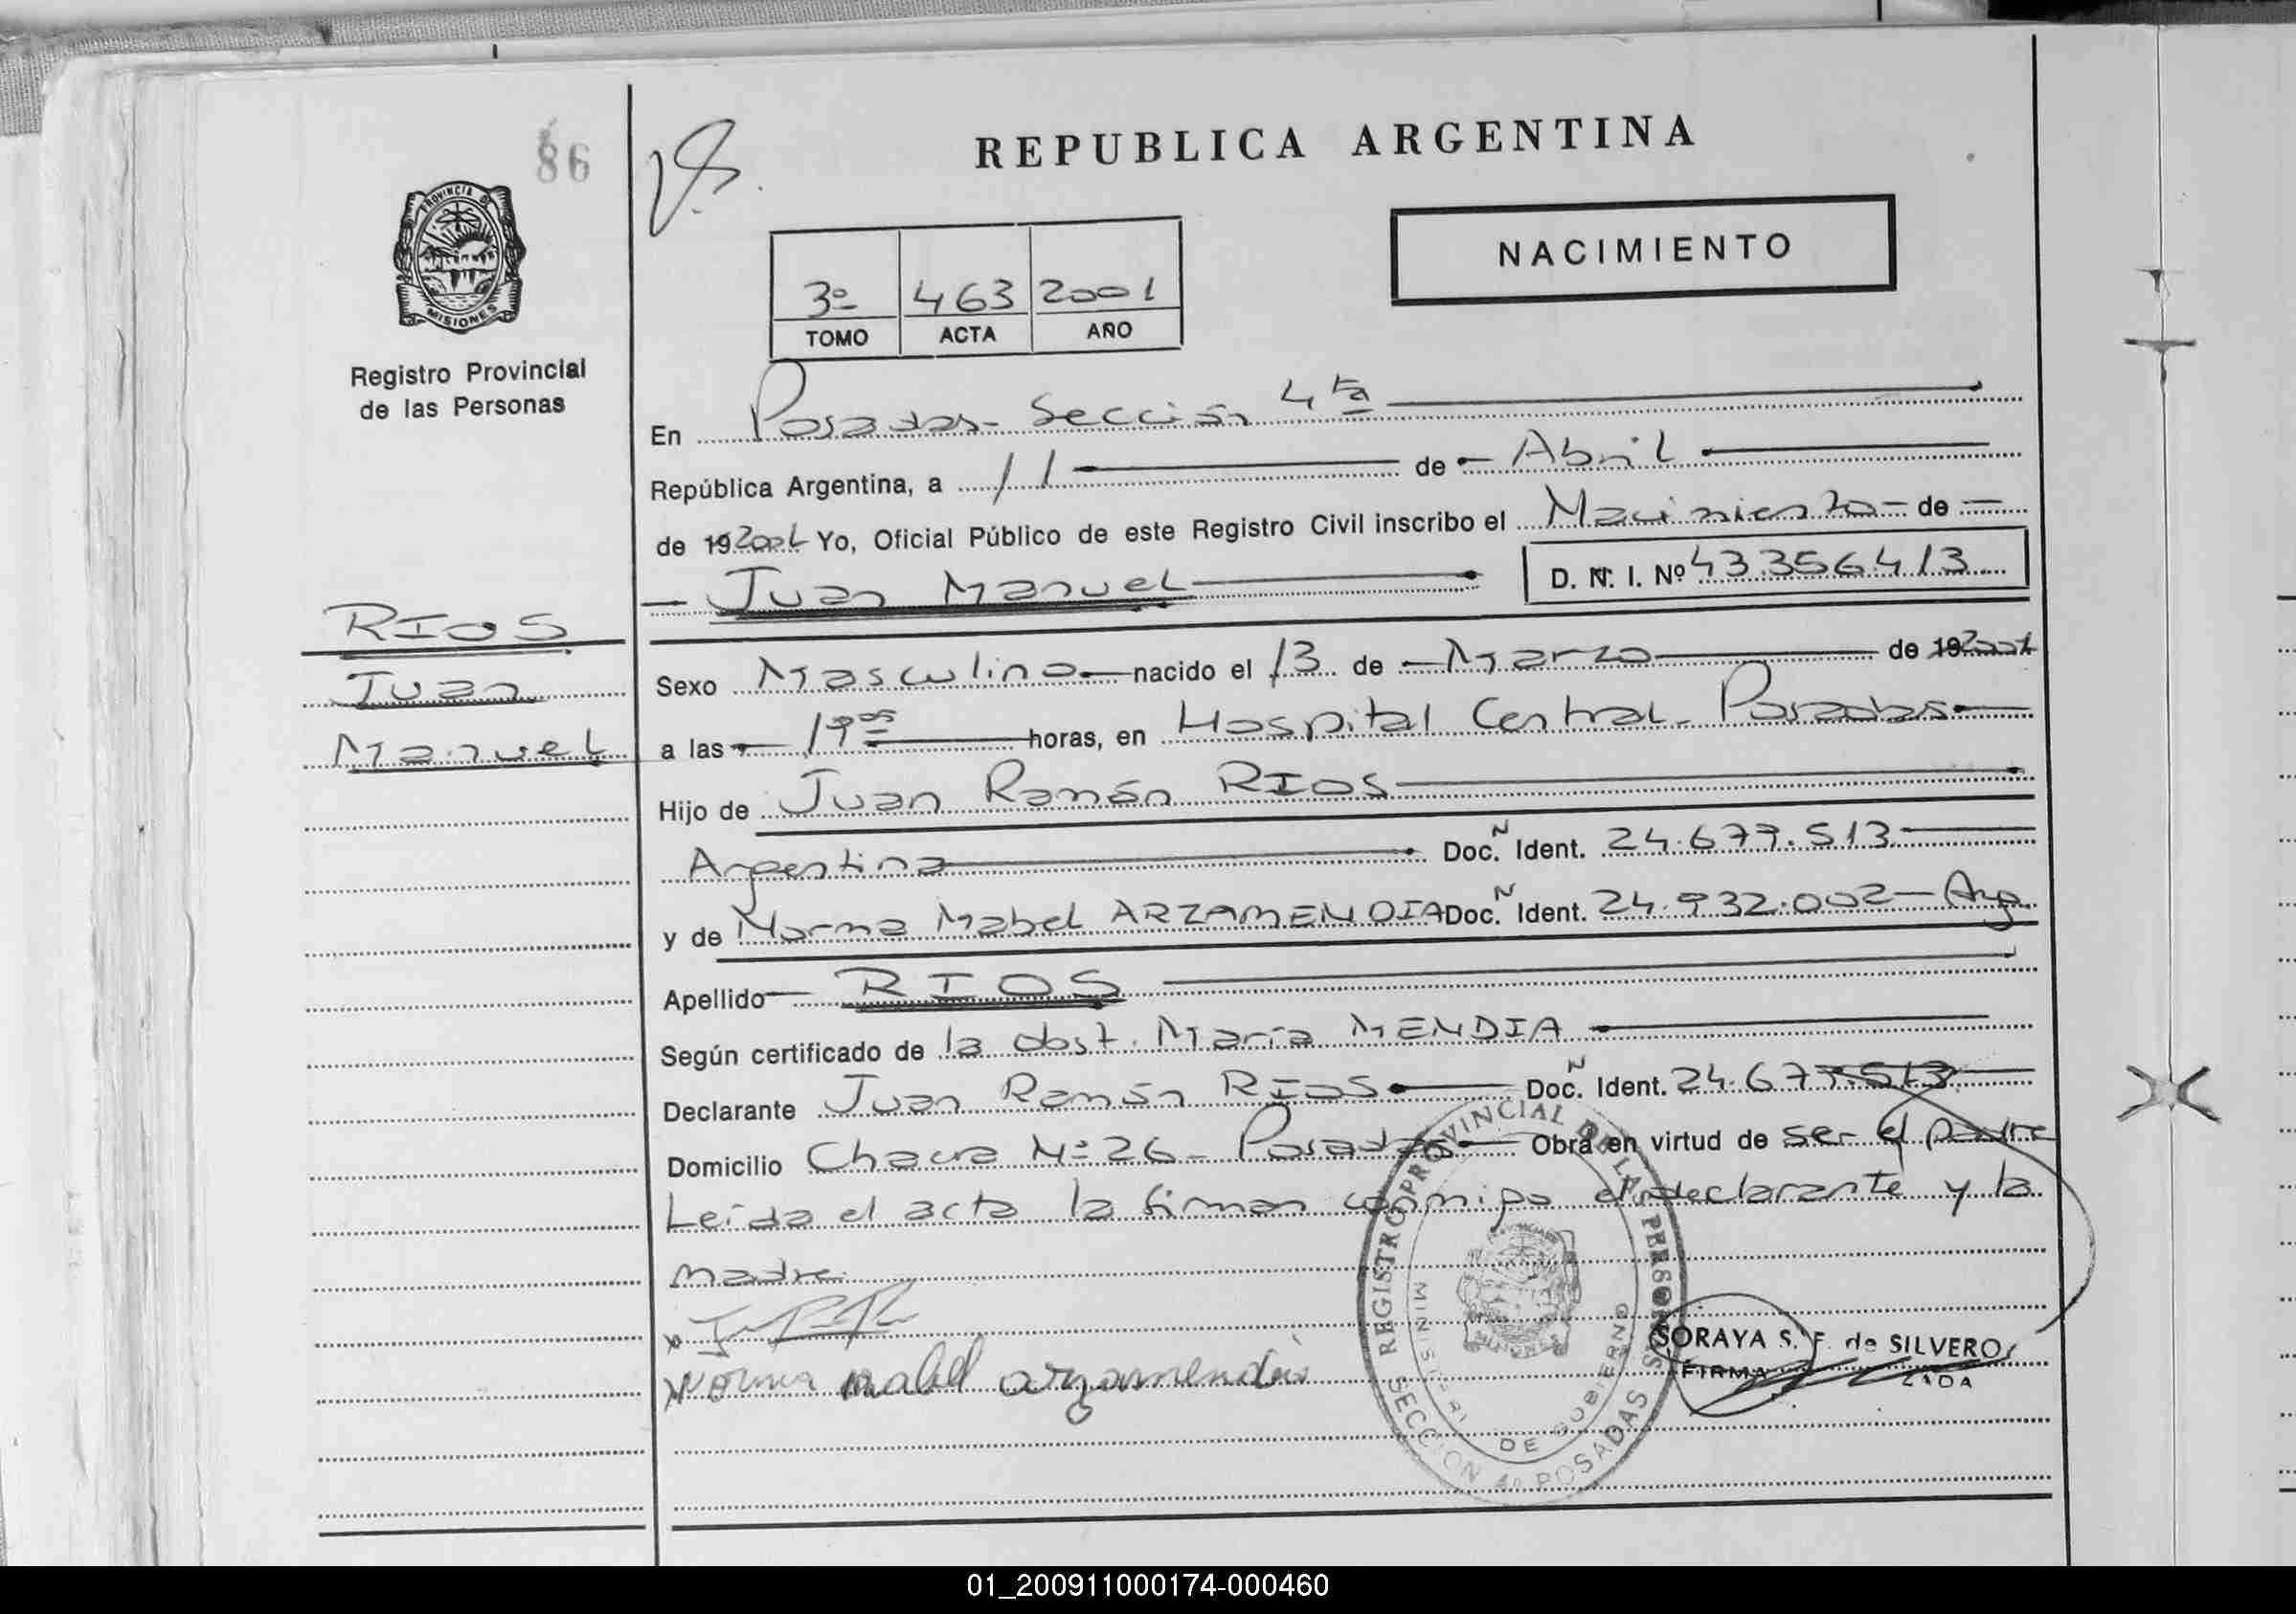 86
REPUBLICA ARGENTINA
PROVINCIA DE
MISIONES
Registro Provincial
de las Personas
NACIMIENTO
3º 463 2001
TOMO ACTA AÑO
En Posadas- Sección 4ta
República Argentina, a 11 de Abril
de 192001 Yo, Oficial Público de este Registro Civil inscribo el Nacimiento - de
Juan Manuel D. N. I. Nº 43356413
RIOS
Juan
Manuel
Sexo Masculino nacido el 13 de Marzo de 192001
a las 19 05 horas, en Hospital Central - Posadas
Hijo de Juan Ramón RIOS
Argentina Doc. N Ident. 24.677.513
y de Norma Mabel ARZAMENDIA Doc. N Ident. 24.932.002 - Arg.
Apellido RIOS
Según certificado de la obst. María MENDIA
Declarante Juan Ramón RIOS Doc. N Ident. 24.677.513
Domicilio Chacra Nº 26 - Posadas Obra en virtud de ser el padre
Leída el acta la firman conmigo el declarante y la
madre
Norma mabel arzamendia
REGISTRO PROVINCIAL DE LAS PERSONAS
MINISTERI DE GOBIERNO
SECCION 4ª POSADAS
SORAYA S. F. de SILVERO
FIRMA ZADA
01_200911000174-000460